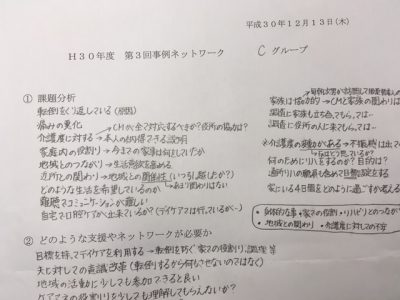 平成30年12月13日(木)
H30年度 第3回事例ネットワーク Cグループ
① 課題分析
転倒をくり返している(原因)
痛みの悪化 →CMが全て対応するべきか?役所の協力は?
介護度に対する→本人の納得できる説明
家庭内の役割り→今までの家事は何をしていたか
地域とのつながり→生活意欲を高める
近所との関わり→地域との関係性(いつ引っ越したか?)
どのような生活を希望しているのか →あまり関わりはない
難聴でコミュニケーションが難しい
自宅で口腔ケアへ出来ているか?(デイケアでは行っているが…)
家族は協力的→CMと家族の関わりは
調査に家族も立ち会ってもらっては…
調査に役所の人に来てもらっては…
※介護度の変動がある→不眠時は出て
何のためにリハをするのか?目的は?
通所リハの職員も含めて目標設定をする
家にいる4日間をどのように過すか考える
・身体的な事・家での役割・リハビリとのつなが
・地域との関わり ・介護度に対しての不
② どのような支援やネットワークが必要か
目標を持ってデイケアを利用する→転倒を防ぐ 家での役割り、調理等
夫に対しての意識改革(転倒するから何もさせないのではなく)
地域の活動に少しでも参加できると良い
ケアマネの役割りを少しでも理解してもらえないか?